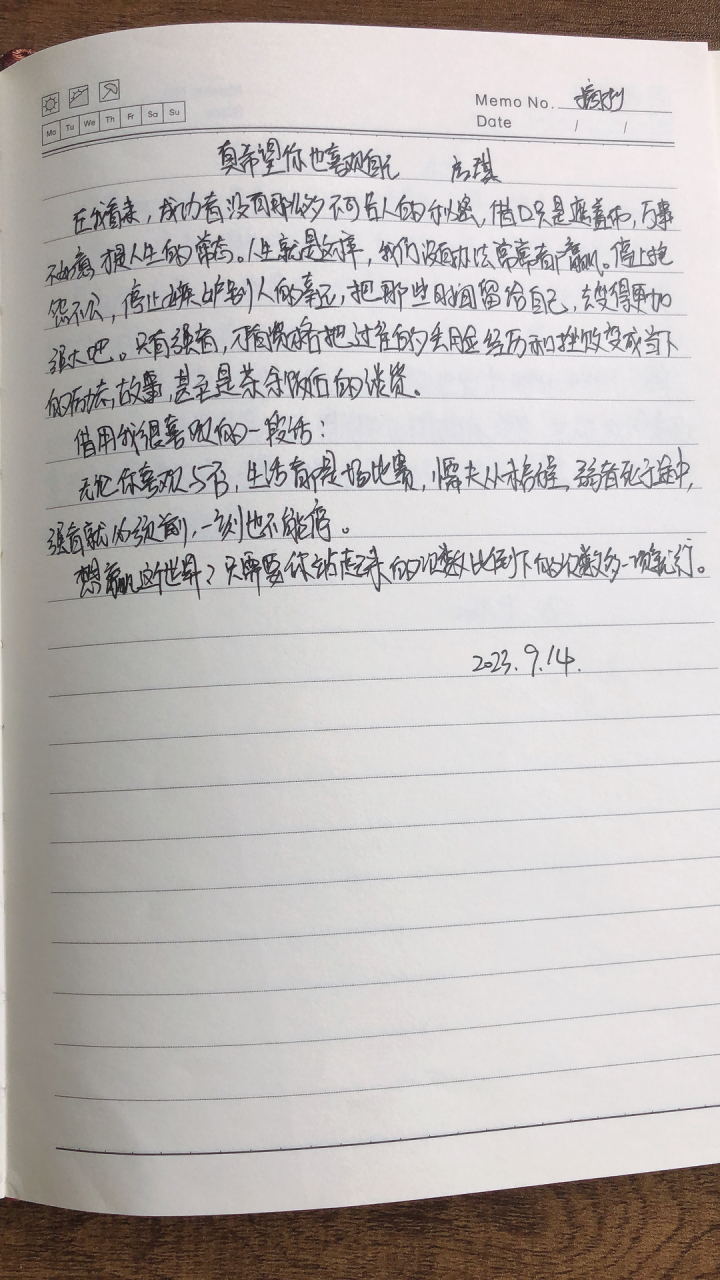 Memo No.
Mo Tu We Th Fr Sa Su
Date / /
真希望你也喜欢自己 房琪
在我看来，成功者没有那么多不可告人的秘密，借口只是遮羞布，万事
不如意才是人生的常态。人生就是这样，我们没有办法常常看广赢。停止抱
怨不公，停止嫉妒别人的幸运，把那些时间留给自己，去变得更加
强大吧。只有强者，才有资格把过往的丢脸经历和挫败变成当下
的励志故事，甚至是茶余饭后的谈资。
借用我很喜欢的一段话：
无论你喜欢与否，生活都是场比赛，懦夫从未启程，弱者死于途中，
强者就必须前，一刻也不能停。
想赢这个世界？只需要你站起来的次数比倒下的次数多一项就行。
2023.9.14.